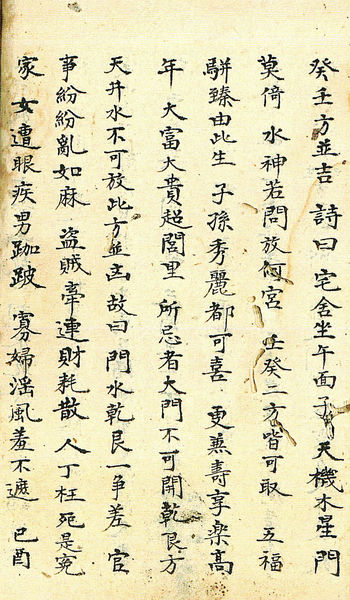 癸壬方並吉 詩曰 宅舍坐午面子 天機木星門
莫倚 水神若問放何宮 壬癸二方皆可取 五福
駢臻由此生 子孫秀麗都可喜 更兼壽享樂高
年 大富大貴超閭里 所忌者大門不可開乾艮方
天井水不可放此方並凶 故曰 門水乾艮一爭差 官
事紛紛亂如麻 盜賊牽連財耗散 人丁枉死是冤
家 女遭眼疾男跏跛 寡婦淫風羞不遮 巳酉